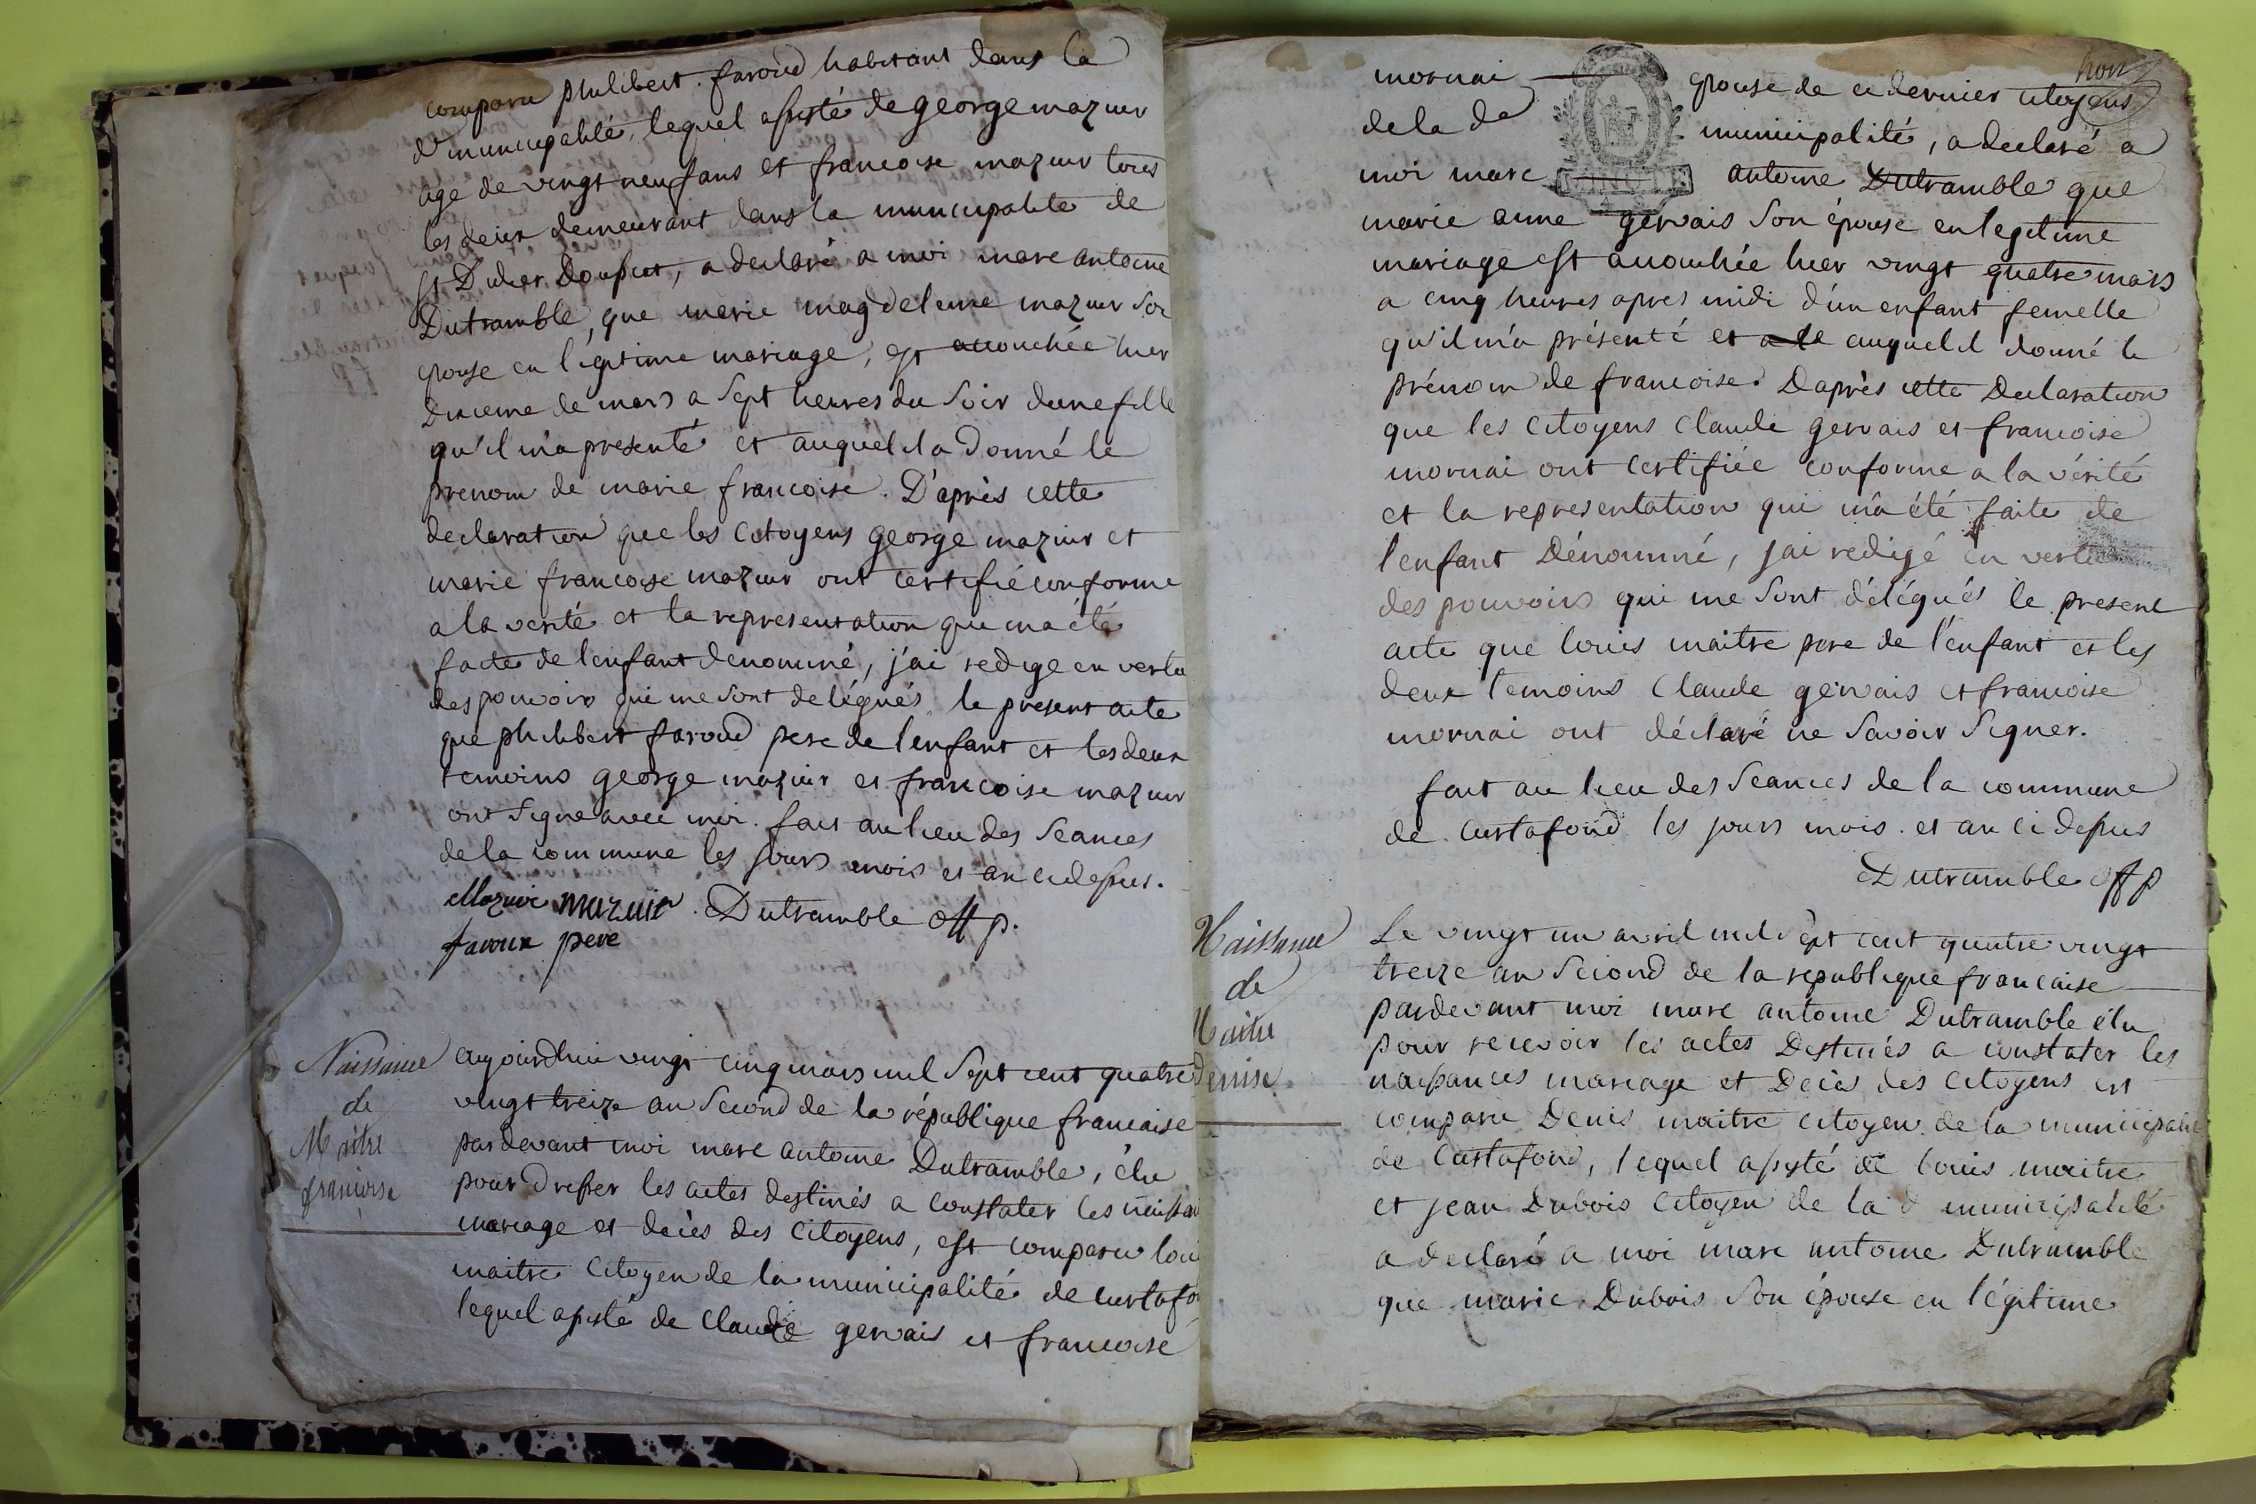 comparu philibert faroud habitant dans la
d municipalité, lequel assisté de george mazuir
age de vingt neuf ans et francoise mazuir tous
les deux demeurant dans la municipalite de
st Didier Doussiat, a declaré a moi marc antoine
Dutramble, que marie magdeleine mazuir son
epouse en légitime mariage, est accouchée hier
de mars a sept heures du soir dune fille
qu'il m'a presenté et auquel il a donné le
prenom de marie francoise. D'après cette
declaration que les citoyens george mazuir et
marie francoise mazuir ont certifié conforme
a la verité et la representation qui m'a été
faite de l'enfant denommé, j'ai redige en vertu
des pouvoirs qui me sont delégués le present acte
que philibert faroud pere de l'enfant et les deux
temoins george mazuir et francoise mazuir
ont signe avec moi. fait au lieu des seances
de la commune les jours mois et an cidessus.
Mazuir mazuir Dutramble off p.
faroux pere
Naissance
de
Maitre
francoise
aujourdhui vingt cinq mars mil sept cent quatre
vingt treize an second de la république francaise
pardevant moi marc antoine Dutramble, élu
pour dresser les actes destinés a constater les naissan
mariage et décès des citoyens, est comparu loui
maitre citoyen de la municipalité de curtafo
lequel assisté de claude gervais et francoise
mornai epouse de ce dernier citoyens
de la de municipalité, a declaré a
moi marc antoine Dutramble que
marie anne gervais son épouse en legitime
mariage est accouchée hier vingt quatre mars
a cinq heures apres midi d'un enfant femelle
qu'il m'a présenté et auquel il donné le
prénom de francoise. Daprès cette Declaration
que les citoyens claude gervais et francoise
mornai ont certifiée conforme a la vérité
et la representation qui m'a été faite de
l'enfant Dénommé, j'ai redigé en vertu
des pouvoirs qui me sont délégués le present
acte que louis maitre pere de l'enfant et les
deux temoins claude gervais et francoise
mornai ont déclaré ne savoir signer.
fait au lieu des seances de la commune
de curtafond les jours mois et an ci dessus
Dutramble off p
Naissance
de
Maitre
Denise
Le vingt un avril mil sept cent quatre vingt
treize an second de la republique francaise
pardevant moi marc antoine Dutramble élu
pour recevoir les actes Destinés a constater les
naissances mariage et Décès des citoyens est
comparu Denis maitre citoyen de la municipalité
de Curtafond, lequel assisté de louis maitre
et jean Dubois citoyen de la d municipalité
a declaré a moi marc antoine Dutramble
que marie Dubois son épouse en légitime